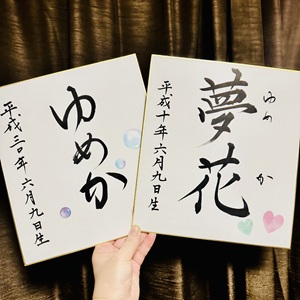 ゆめか
平成三〇年六月九日生
夢花
ゆめ か
平成十年六月九日生